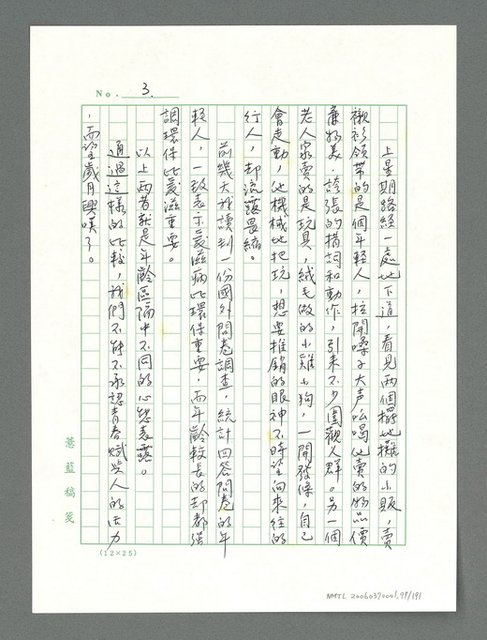 No. 3.
上星期路經一處地下道，看見兩個擺地攤的小販，賣
襯衫領帶的是個年輕人，拉開嗓子大聲吆喝他賣的物品價
廉物美。誇張的措詞和動作，引來不少圍觀人群。另一個
老人家賣的是玩具，絨毛做的小雞小狗，一開發條，自己
會走動，他機械地把玩，想要推銷的眼神不時望向來往的
行人，却流露畏縮。
前幾天我讀到一份國外問卷調查，統計回答問卷的年
輕人，一致表示愛滋病比環保重要，而年齡較長的却都強
調環保比愛滋重要。
以上兩者就是年齡區隔中不同的心態表露。
通過這樣的比較，我們不能不承認青春賦與人的活力
，而望歲月興嘆了。
(12×25)
NMTL 20060370001.98/191